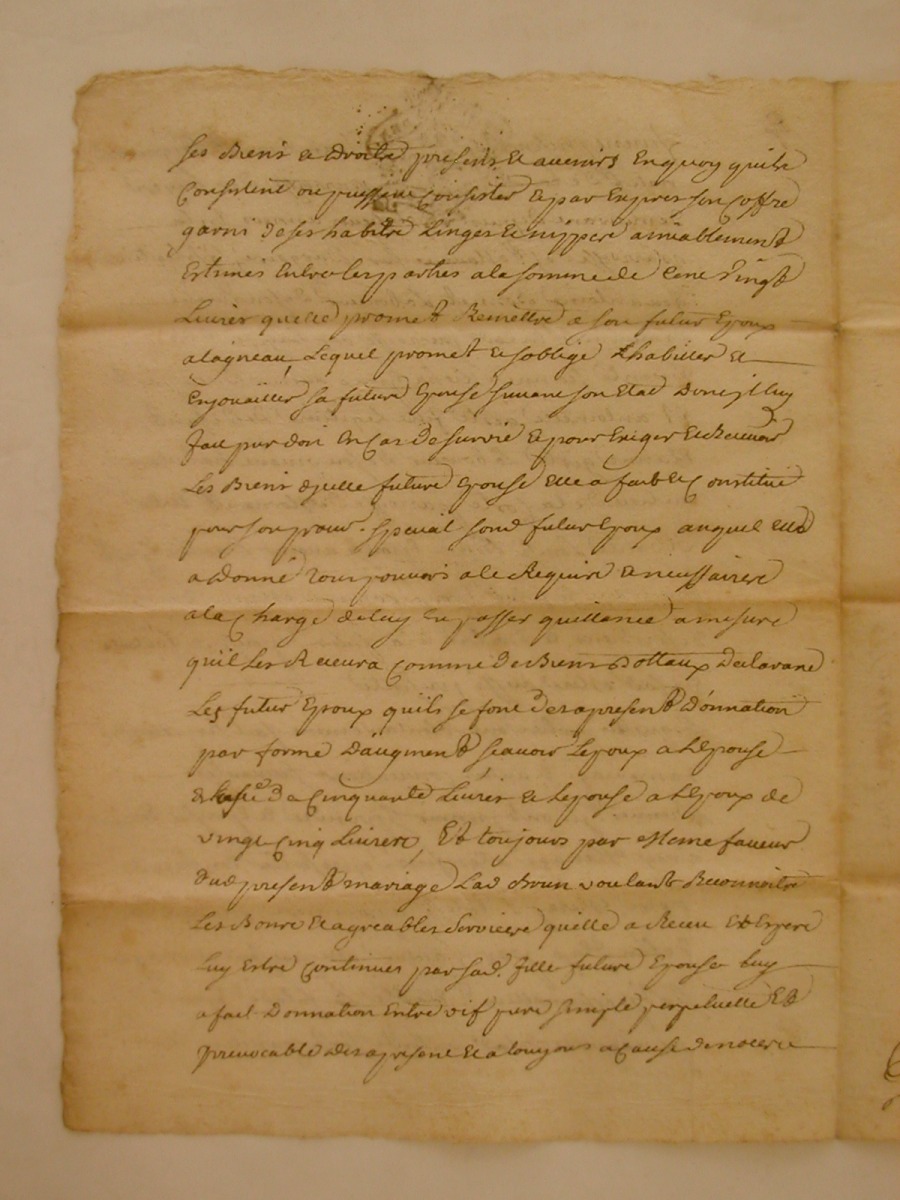 ses Biens et droits presens et avenirs En quoy quils
Consistent ou puissent Consister et par Expres son Coffre
garni de ses habits Linges et nippes amiablement
Estimés Entre les parties a la somme de Cent vingt
Livres quelle promet Remettre a son futur Epoux
a lagneau, Lequel promet et soblige Lhabiller et
Enjouailler sa future Epouse suivant son Etat Dont jl luy
fait pur don En Cas de survie et pour Exiger et Recevoir
Les Biens djcelle future Epouse Elle a fait et Constitué
pour son procur. special sond futur Epoux auquel elle
a donné tous pouvoirs a le Requis et necessaires
a la Charge de luy En passer quittance a mesure
quil Les Recevra Comme de Biens Dottaux Declarant
Les futur Epoux quils se font des a present Donnation
par forme Daugment scavoir Lepoux a LEpouse
de Cinquante Livres et Lepouse a LEpoux de
vingt Cinq Livres, Et toujours par Meme faveur
dud present mariage Lad Brun voulant Reconnoitre
Les Bons Et agreables services quelle a Receu Et Espere
Luy Estre Continues par sad. fille future Epouse luy
a fait Donnation Entre vif pure simple perpetuelle Et
jrrevocable des a present Et a toujours a Cause de noces